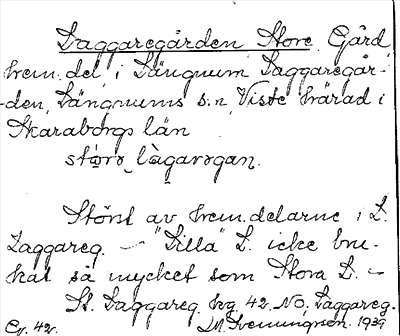 Laggaregården, Store Gård,
hem.del, i Längnum Laggaregår-
den, Längnums s:n, Viste härad i
Skaraborgs län
stǫrə làgarəgan.
Störst av hem.delarne i L.
Laggareg. – "Lilla" L. icke bru-
kat så mycket som Stora L. –
St. Laggareg. hg 42. NO, Laggareg.
Ev. 42. 1939